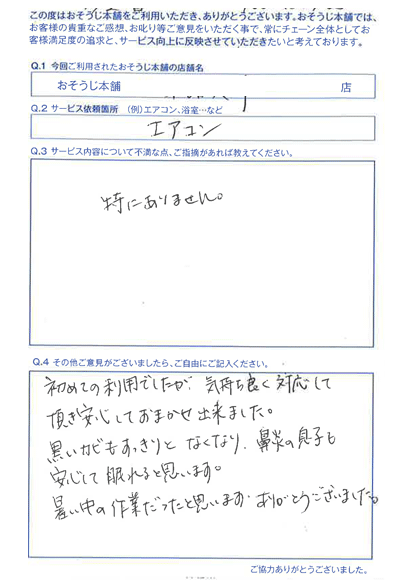 この度はおそうじ本舗をご利用いただき、ありがとうございます。おそうじ本舗では、
お客様の貴重なご感想、お叱り等ご意見をいただく事で、常にチェーン全体としてお
客様満足度の追求と、サービス向上に反映させていただきたいと考えております。
Q.1 今回ご利用されたおそうじ本舗の店舗名
おそうじ本舗 店
Q.2 サービス依頼箇所 (例)エアコン、浴室…など
エアコン
Q.3 サービス内容について不満な点、ご指摘があれば教えてください。
特にありません。
Q.4 その他ご意見がございましたら、ご自由にご記入ください。
初めての利用でしたが、気持ち良く対応して
頂き安心しておまかせ出来ました。
黒いカビもすっきりと なくなり、鼻炎の息子も
安心して眠れると思います。
暑い中の作業だったと思います。ありがとうございました。
ご協力ありがとうございました。